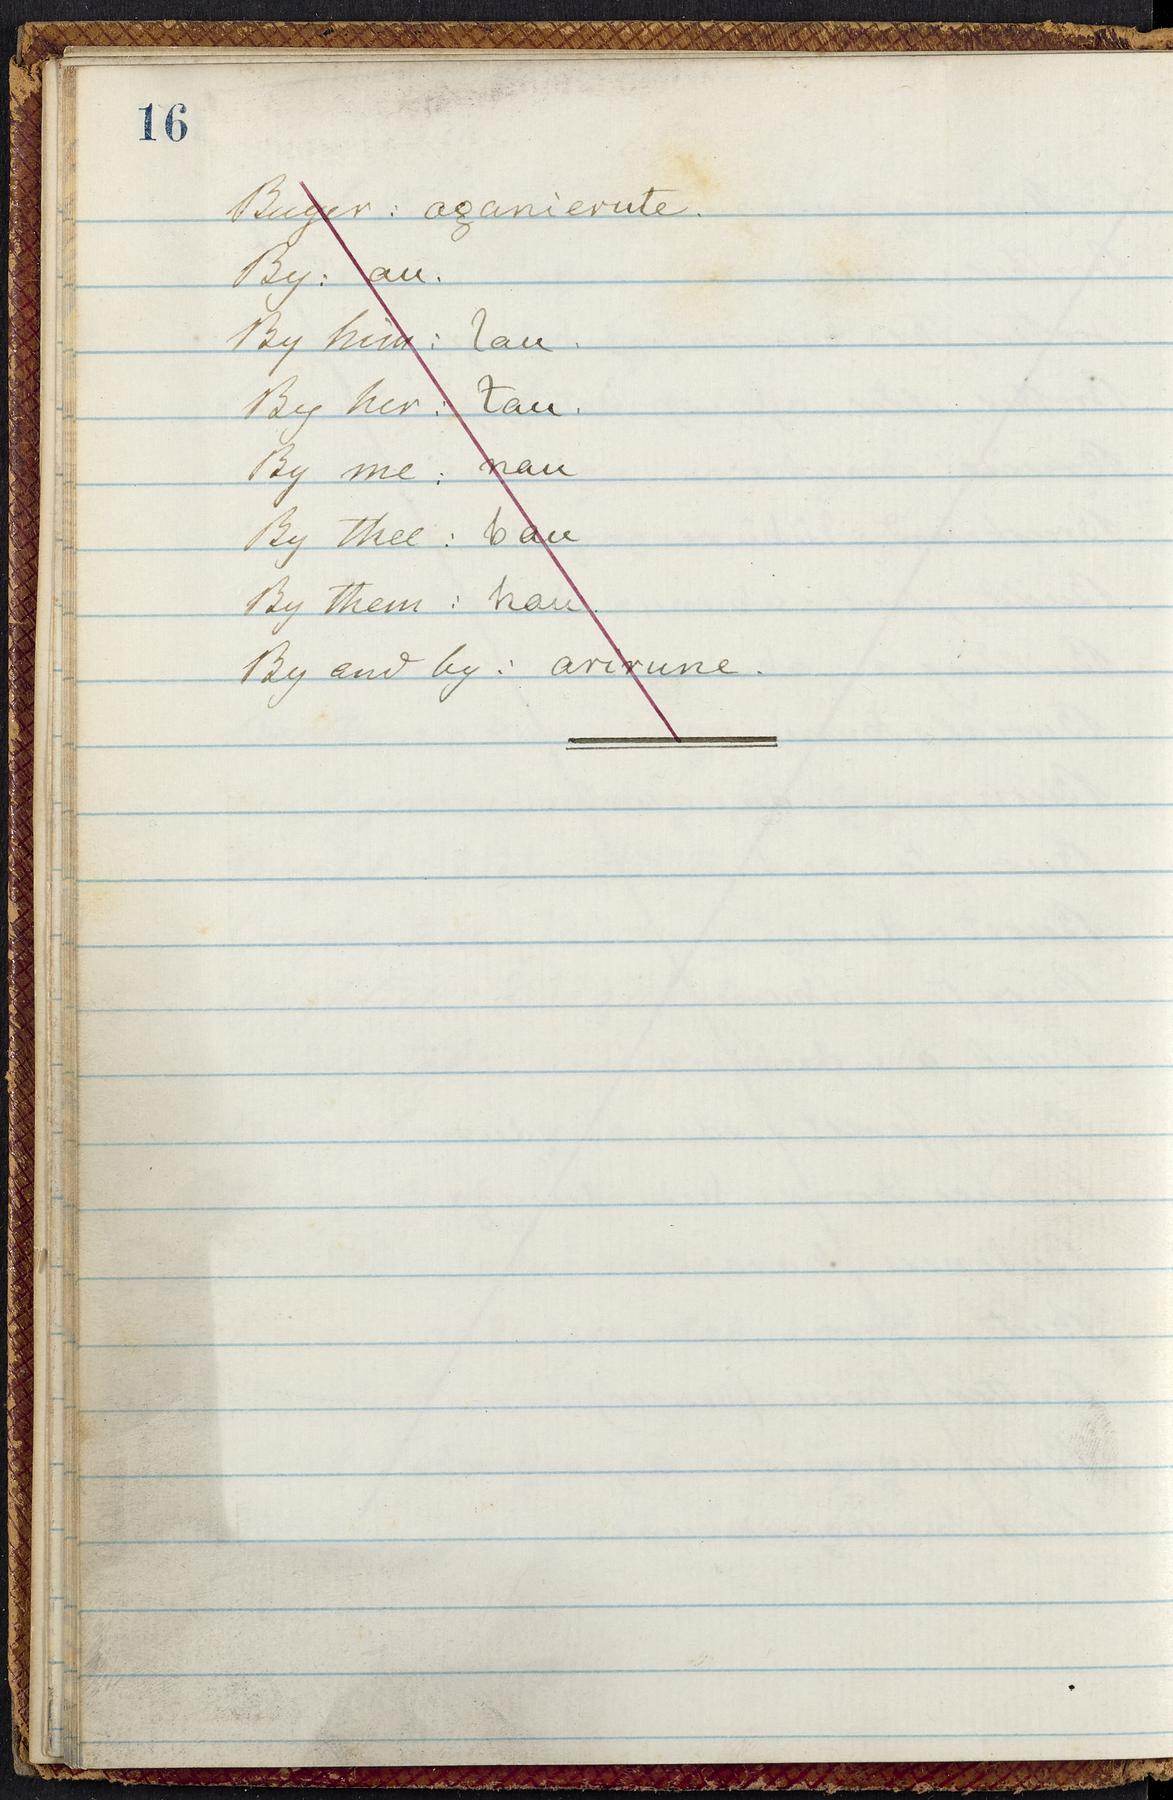 16
Buyer : aganierute.
By : au.
By him : lau.
By her : tau.
By me : nau
By thee : bau
By them : hau.
By and by : arirune.